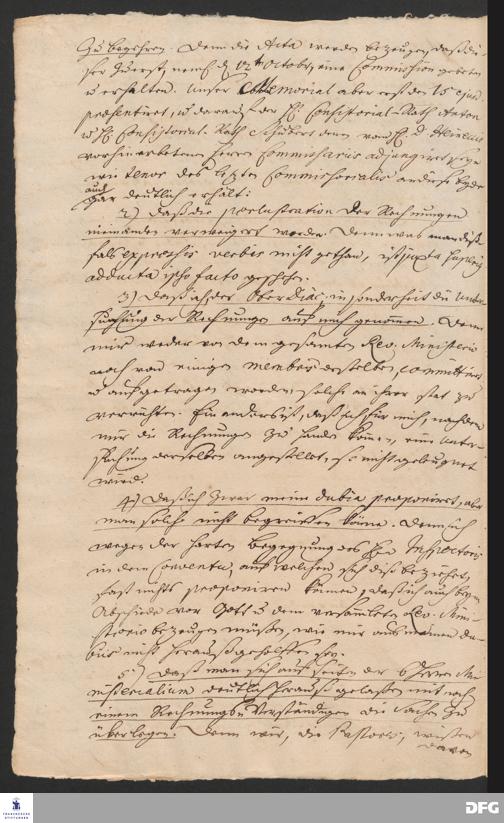 Zu begehren. Denn die Acta werden bezeugen, daß die-
ser zuerst, neml. d. 12ten Octobr. eine Commission gebeten
u. erhalten. Unser Memorial aber erst den 15 ejusd.
præsentiret, u. darauf der H. Consistorial-Rath Anton
u. H. Consistorial-Rath Schubert dem vom H. D. Heineccio
vorhin erbetenen Herrn Commissario adjungiret,
wie tenor des letzten Commissorialis
auch
gar deutlich erhält:
2) Daß die praelustration der Rechnungen
niemanden verweigert worden. Denn was man dießfalls
expressis verbis nicht gethan, ist juxta
adducta ipso facto geschehen.
3) Daß ich, der Ober Diac. insonderheit die Unter-
suchung der Rechnungen auf mich genommen. Denn
mir weder von dem gesamten Rev. Ministerio
noch von einigen membris desselben, committiret
u. aufgetragen worden, solche an ihrer stat zu
verrichten. Ein anders ist, daß ich für mich, nachdem
mir die Rechnungen zu handen kommen, eine Unter-
suchung derselben angestellet, so nicht geleugnet
wird.
4) Daß ich zwar meine dubia proponiret, aber
man solche nicht begreiffen könne. Denn ich
wegen der harten Begegnung des Hn Inspectoris
in dem Conventu, auf welchen sich diß beziehet,
fast nichts proponiren können, daß ich auch beym
Abschiede vor Gott u. dem versamleten Rev. Mini-
sterio bezeugen müßen, wie mir aus meinen du-
biis nicht herausgeholffen sey.
5) Daß man sich auf seiten der 6 Herren Mi-
nisterialium deutlich heraus gelaßen mit noch
einem Rechnungs Verständigen die Sachen zu
überlegen. Denn wir, die Pastores, wißen
davon
FRANCKESCHE
STIFTUNGEN
DFG